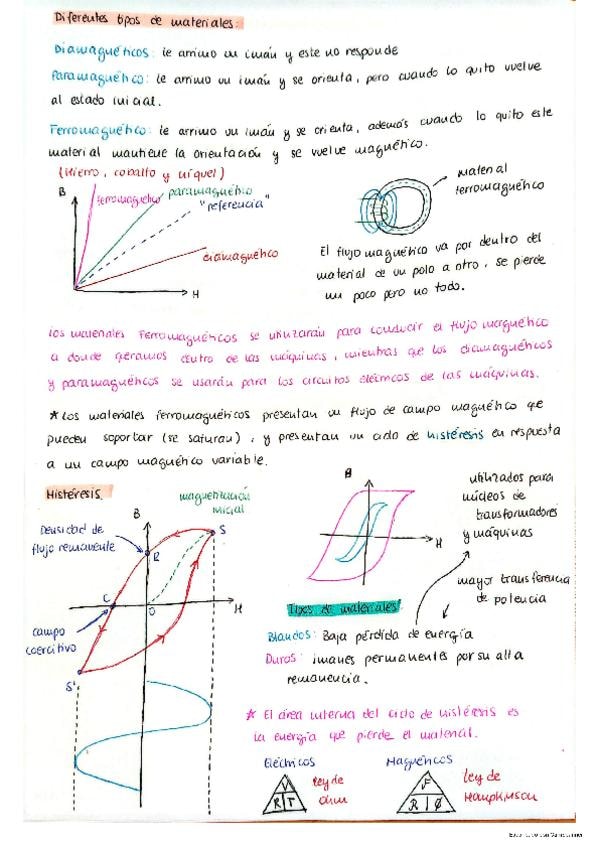 Diferentes tipos de materiales:
Diamagnéticos: le arrimo un imán y este no responde
Paramagnético: le arrimo un imán y se orienta, pero cuando lo quito vuelve
al estado inicial.
Ferromagnético: le arrimo un imán y se orienta, además cuando lo quito este
material mantiene la orientación y se vuelve magnético.
(Hierro, cobalto y níquel)
B
ferromagnético
paramagnético
"referencia"
diamagnético
H
material
ferromagnético
El flujo magnético va por dentro del
material de un polo a otro, se pierde
un poco pero no todo.
Los materiales Ferromagnéticos se utilizarán para conducir el flujo magnético
a donde queramos dentro de las máquinas, mientras que los diamagnéticos
y paramagnéticos se usarán para los circuitos eléctricos de las máquinas.
* Los materiales ferromagnéticos presentan un flujo de campo magnético que
pueden soportar (se saturan), y presentan un ciclo de histéresis en respuesta
a un campo magnético variable.
Histéresis.
magnetización
inicial
B
S
Densidad de
flujo remanente
R
C
O
H
campo
coercitivo
S'
B
H
utilizados para
núcleos de
transformadores
y máquinas
mayor transferencia
de potencia
Tipos de materiales:
Blandos: Baja pérdida de energía
Duros: imanes permanentes por su alta
remanencia.
* El área interna del ciclo de histéresis es
la energía que pierde el material.
Eléctricos
V
R I
ley de
Ohm
Magnéticos
F
R Φ
ley de
Hompkinson